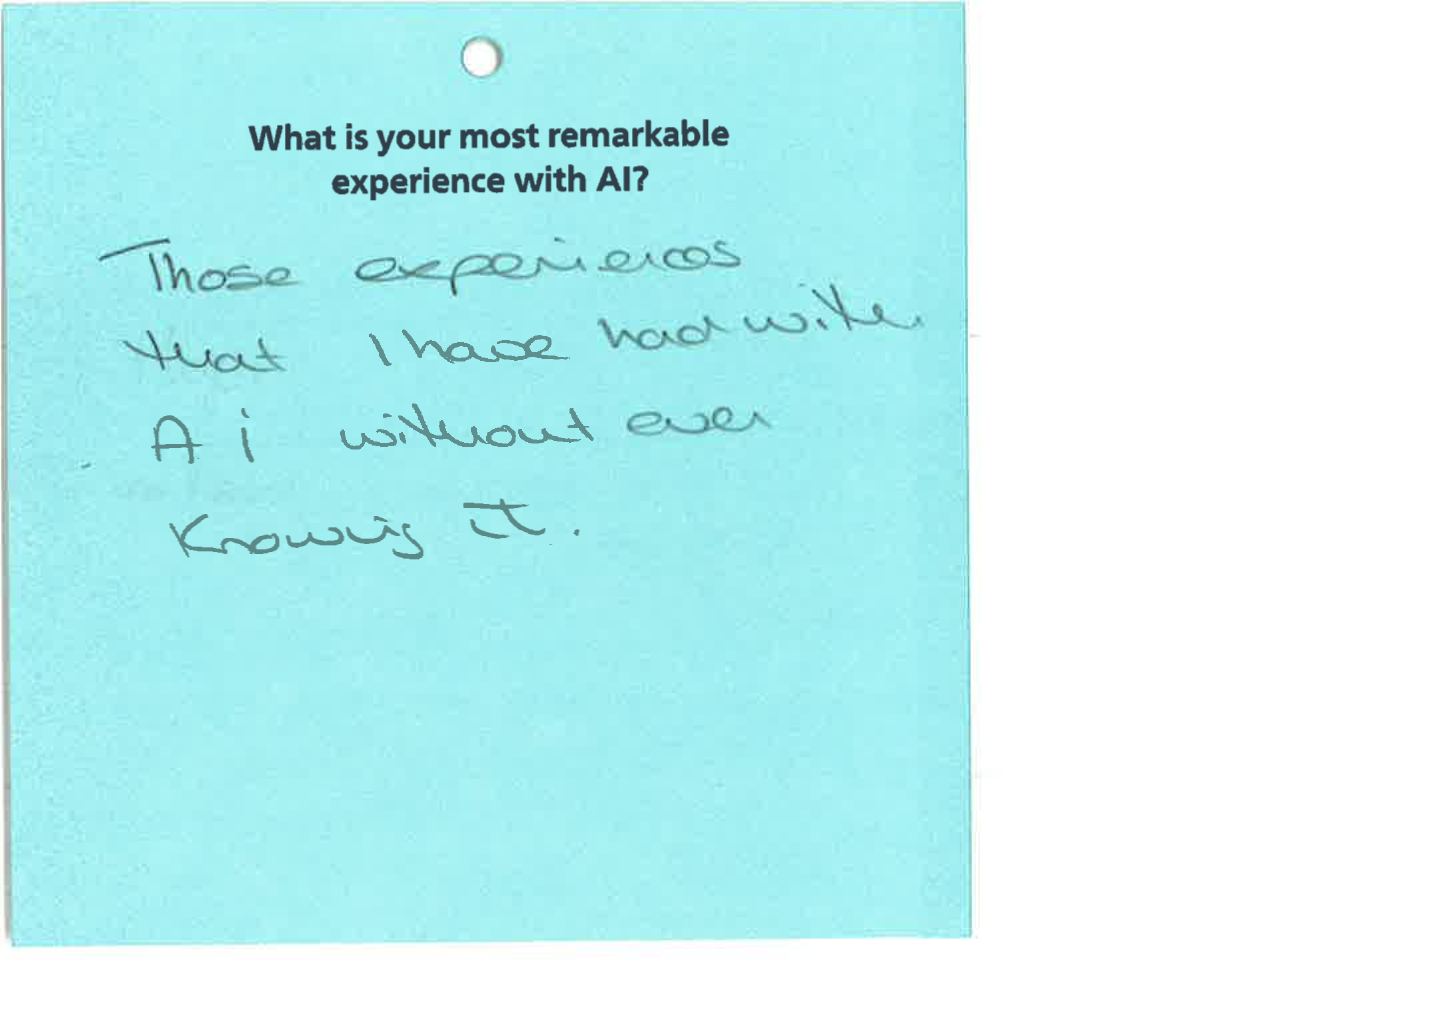 What is your most remarkable
experience with AI?
Those experiences
that I have had with
Ai without ever
knowing it.